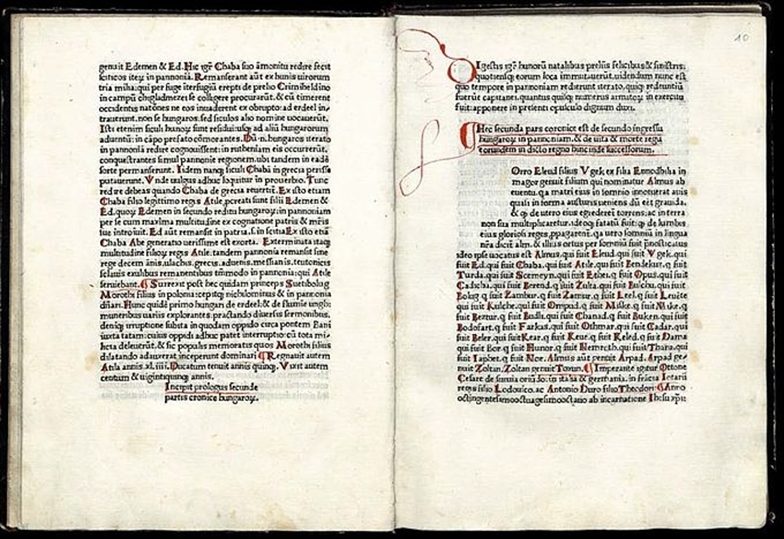 genuit Edemen & Ed. Hic igr̃ Chaba suo āmonitu redire fecit
sciticos iteɤ in pannoniā. Remanserant aūt ex hunis uirorum
tria milia: qui per fuge iterfugiū erepti de prelio Crimiheldino
in campū chigladmezei se colligere procurarūt. & cū timerent
occidentis nationes ne eos inuaderent ex obrupto: ad erdel in
trauerunt. non se hungaros. sed siculos alio nomine uocauerūt.
Isti etenim siculi hunoɤ sunt residui: usqɜ ad aliū hungarorum
aduentū: in cāpo prefato cōmorantes. Dū .n. hungaros iterato
in pannonia redire cognouissent: in rutheniam eis occurrerūt.
conquestrantes simul pannonie regionem. ubi tandem in eadē
sorte permanserunt. Iidem nanqɜ siculi Chabā in grecia perisse
putauerunt. Vnde uulgus adhuc loquitur in prouerbio. Tunc
redire debeas quando Chaba de grecia reuertit̃. Ex isto etiam
Chaba filio legittimo regis Atile. pcreati sunt filii Edemen &
Ed. quoɤ Edemen in secundo reditu hungaroɤ: in pannoniam
per se cum maxima multitudine ex cognatione patris & mr̃is
sue introiuit. Ed aūt remansit in patria. f. in scitia Ex isto etiā
Chaba Abe generatio uerissime est exorta. Exterminata itaqɜ
multitudine filioɤ regis Atile. tandem pannonia remansit sine
rege decem ānis. ulachis. grecis. aduenis. messianis. teutonicis
selauis exulibus remanentibus tm̃modo in pannonia: qui Atile
seruiebant. ¶ Surrexit post hec quidam princeps Suetibolug
Moroth filius in polonia: cepitqɜ nichlomitus & in pannonia
dñari. Hunc quidē primo hungari de erdel. & de flumie ungh:
muneribus uariis explorantes. practando diuersus sermonibus.
deniqɜ irruptione subita in quodam oppido circa pontem Bani
iuxta tatam: cuius oppidi adhuc patet interruptio: cū tota mi-
licia deleuerūt. & sic populos memoratos quos Moroth filius
dilatando aduxerat inceperunt dominari ¶ Regnauit autem
Atila annis .xl.iiii. Ducatum tenuit annis quinqɜ. Vixit autem
centum & uigintiquinqɜ annis.
Incipit prologus secunde
partis cronice hungaroɤ.
10
DIgestis igr̃ hunorū natalibus preliis felicibus & sinistris:
quotiensqɜ eorum loca immutauerūt. uidendum nunc est
quo tempore in pannoniam redierunt iterato. quiqɜ redeuntiū
fuerūt capitanei. quantus quilqɜ numerus armatoɤ in exercitu
fuit: apponere in presenti opusculo dignum duxi.
¶ Hec secunda pars coronice est de secundo ingressu
hungaroɤ in pannoniam. & de uita & morte regū
eorundem in dicto regno hinc inde successorum.
Orro Eleud filius Vgek ex filia Ennodbilia in
magor genuit filium qui nominatur Almus ab
euentu. qa matri eius in somnio innotuerat auis
quasi in forma austuris ueniens dū eēt grauida.
& qɜ de utero eius egrederet̃ torrens. ac in terra
non sua multiplicaretur. ideoqɜ fatatū fuit: qɜ de lumbis
eius gloriosi reges. ppagarent̃. qa uero somniū in lingua
nr̃a dicit̃ alm. & illius ortus per somniū fuit p̃nosticatus
ideo ipse uocatus est Almus. qui fuit Eleud. qui fuit Vgek. qui
fuit Ed. qui fuit Chaba. qui fuit Atile. qui fuit Bendekuz. q̃ fuit
Turda. qui fuit Scemeyn. qui fuit Ethei. q̃ fuit Opus. qui fuit
Cadicha. qui fuit Berend. q̃ fuit Zulta. qui fuit Bulchu. qui fuit
Bolug q̃ fuit Zambur. q̃ fuit Zamur. q̃ fuit Leel. q̃ fuit Leuēte
qui fuit Kulche. qui fuit Ompud. q̃ fuit Miske. q̃ fuit Mike. q̃
fuit Beztur. q̃ fuit Budli. qui fuit Chanad. q̃ fuit Buken. qui fuit
Bodofart. q̃ fuit Farkas. qui fuit Othmar. qui fuit Cadar. qui
fuit Beler. qui fuit Kear. q̃ fuit Keue. q̃ fuit Keled. q̃ fuit Dama
qui fuit Bor. q̃ fuit Hunor. q̃ fuit Nemroth. qui fuit Thara. qui
fuit Iaphet. q̃ fuit Noe. Almus aūt genuit Arpad. Arpad ge-
nuit Zoltan. Zoltan genuit Toxun. ¶ Imperante igitur Ottone
Cesare de sueuia oriūdo. in italia & germania. in frācia Lotarii
regis filio Lodouico. ac Antonio Duro filio Theodori ¶ Anno
octingentesimooctuagesimooctauo ab incarnatione Ihesu xp̃ii